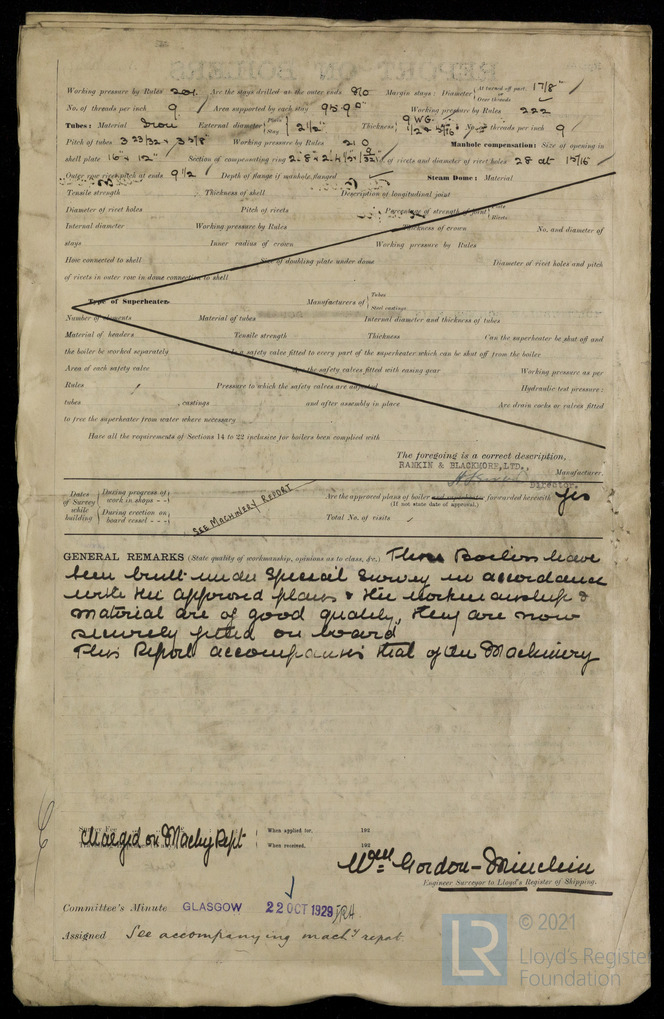 Working pressure by Rules 201 Are the stays drilled at the outer ends No Margin stays: Diameter { At turned off part, 1 7/8"
Over threads
No. of threads per inch 9 Area supported by each stay 95.9 □" Working pressure by Rules 222
Tubes: Material Iron External diameter { Plain Stay 2 1/2" Thickness { 9 WG. No. of threads per inch 9
Pitch of tubes 3 23/32 x 3 5/8" Working pressure by Rules 210 Manhole compensation: Size of opening in
shell plate 16" x 12" Section of compensating ring of rivets and diameter of rivet holes 28 at 15/16
Outer row rivet pitch at ends 9 1/2 Depth of flange if manhole flanged Steam Dome: Material
Tensile strength Thickness of shell Description of longitudinal joint
Diameter of rivet holes Pitch of rivets Percentage of strength of joint { Plate Rivets
Internal diameter Working pressure by Rules Thickness of crown No. and diameter of
stays Inner radius of crown Working pressure by Rules
How connected to shell Size of doubling plate under dome Diameter of rivet holes and pitch
of rivets in outer row in dome connection to shell
Type of Superheater Manufacturers of { Tubes
Steel castings
Number of elements Material of tubes Internal diameter and thickness of tubes
Material of headers Tensile strength Thickness Can the superheater be shut off and
the boiler be worked separately Is a safety valve fitted to every part of the superheater which can be shut off from the boiler
Area of each safety valve Are the safety valves fitted with easing gear Working pressure as per
Rules Pressure to which the safety valves are adjusted Hydraulic test pressure:
tubes , castings and after assembly in place Are drain cocks or valves fitted
to free the superheater from water where necessary
Have all the requirements of Sections 14 to 22 inclusive for boilers been complied with
The foregoing is a correct description,
RANKIN & BLACKMORE, LTD., Manufacturer.
Director
Dates of Survey while building { During progress of work in shops - - } Are the approved plans of boiler and superheater forwarded herewith Yes
(If not state date of approval.)
{ During erection on board vessel - - - } SEE MACHINERY REPORT Total No. of visits
GENERAL REMARKS (State quality of workmanship, opinions as to class, &c.) These Boilers have
been built under Special Survey in accordance
with the approved plans & the workmanship &
material are of good quality, they are now
securely fitted on board
This Report accompanies that of the Machinery
Charged on Machy Rept When applied for, 192
When received, 192
Wm Gordon-Minchin
Engineer Surveyor to Lloyd's Register of Shipping.
Committee's Minute GLASGOW 22 OCT 1929
Assigned See accompanying machy repot
© 2021
LR Lloyd's Register
Foundation